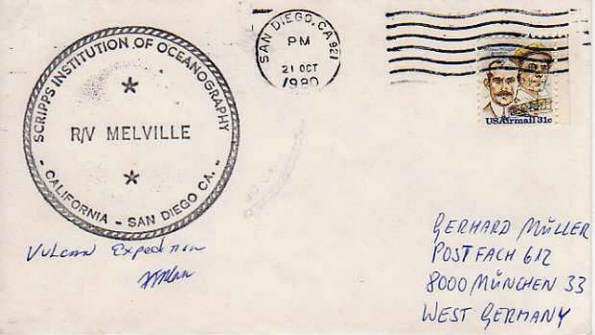 SCRIPPS INSTITUTION OF OCEANOGRAPHY
R/V MELVILLE
- CALIFORNIA - SAN DIEGO CA. -
SAN DIEGO, CA 921
PM
21 OCT
1980
USAirmail 31c
Vulcan Expedition
GERHARD MÜLLER
POSTFACH 612
8000 MÜNCHEN 33
WEST GERMANY